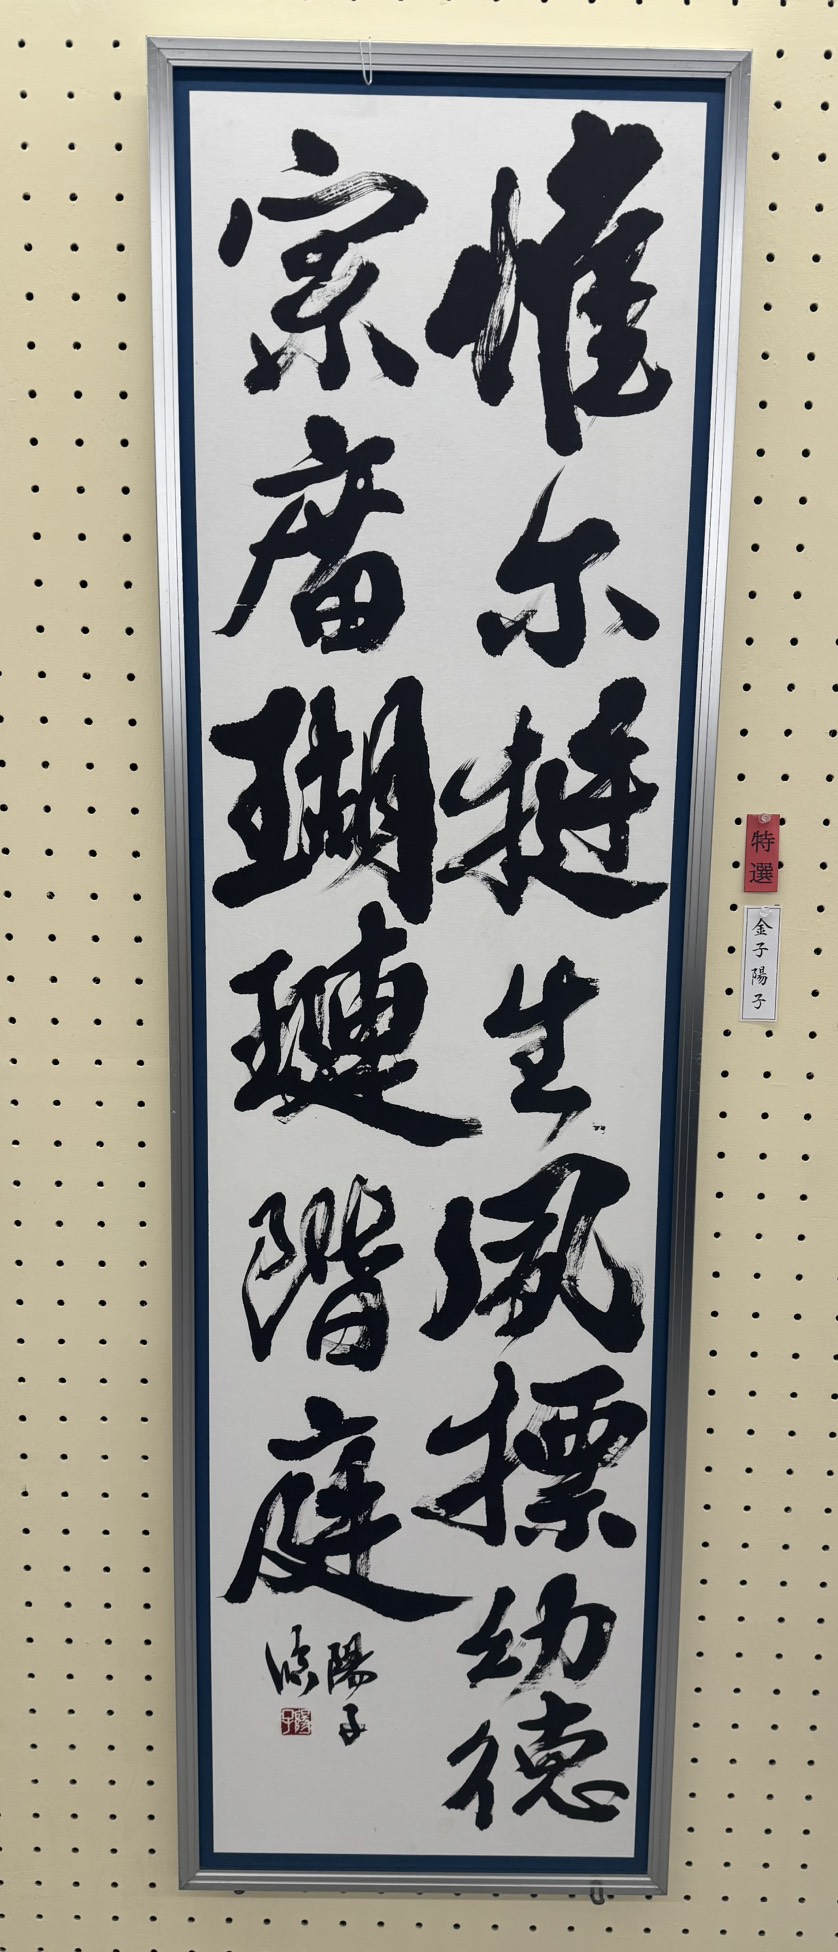 惟尔挺生夙標幼德
宗廟瑚璉階庭
陽子
臨
特選
金子陽子